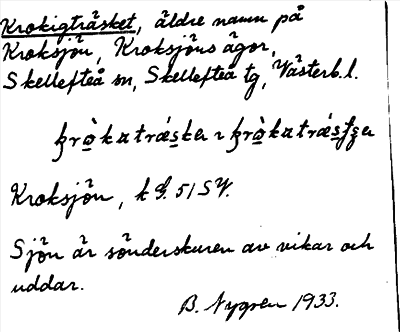 Krokigträsket, äldre namn på
Kroksjön, Kroksjöns ägor,
Skellefteå sn, Skellefteå tg, Västerb. l.
Kroksjön, k g. 51 SV.
Sjön är sönderskuren av vikar och
uddar.
B. Nygren 1933.